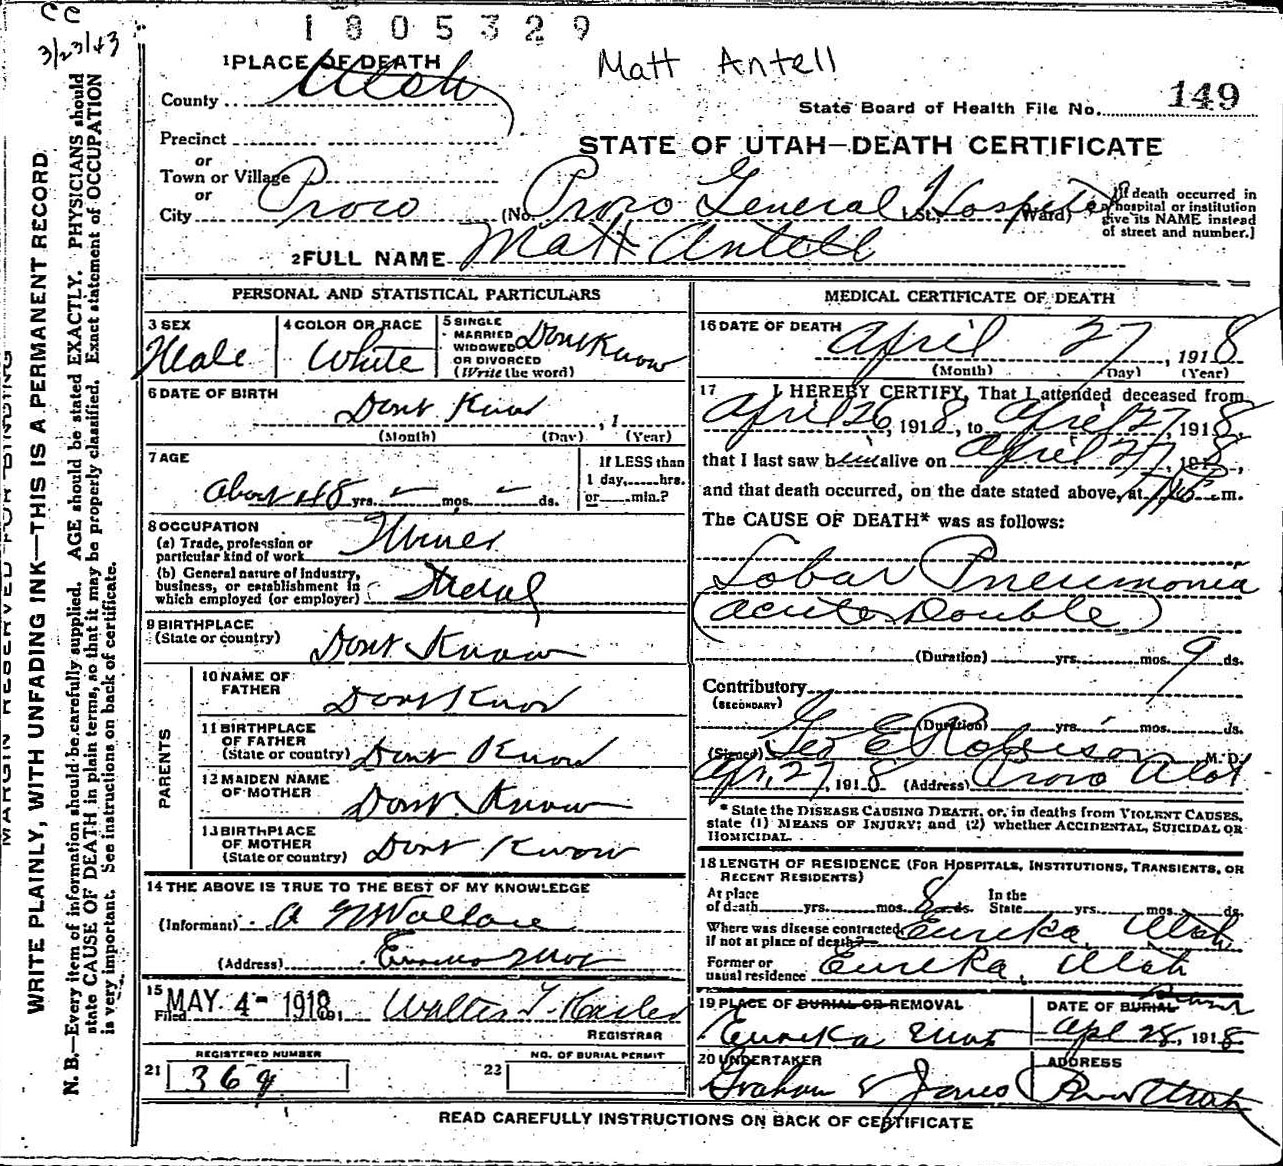 CC
3/23/43
1805329
Matt Antell
MARGIN RESERVED FOR BINDING
WRITE PLAINLY, WITH UNFADING INK—THIS IS A PERMANENT RECORD
N. B.—Every item of information should be carefully supplied. AGE should be stated EXACTLY. PHYSICIANS should
state CAUSE OF DEATH in plain terms, so that it may be properly classified. Exact statement of OCCUPATION
is very important. See instructions on back of certificate.
1 PLACE OF DEATH
County Utah
State Board of Health File No. 149
Precinct
or
Town or Village
or
City Provo
STATE OF UTAH—DEATH CERTIFICATE
(No. Provo General Hospital St.; Ward)
[If death occurred in
a hospital or institution
give its NAME instead
of street and number.]
2 FULL NAME Matt Antell
PERSONAL AND STATISTICAL PARTICULARS
3 SEX
Male
4 COLOR OR RACE
White
5 SINGLE
MARRIED
WIDOWED
OR DIVORCED
(Write the word)
Dont Know
6 DATE OF BIRTH
Dont Know, 1
(Month) (Day) (Year)
7 AGE
About 48 yrs. – mos. – ds.
If LESS than
1 day, hrs.
or min.?
8 OCCUPATION
(a) Trade, profession or
particular kind of work Miner
(b) General nature of industry,
business, or establishment in
which employed (or employer) Metal
9 BIRTHPLACE
(State or country) Dont Know
PARENTS
10 NAME OF
FATHER Dont Know
11 BIRTHPLACE
OF FATHER
(State or country) Dont Know
12 MAIDEN NAME
OF MOTHER Dont Know
13 BIRTHPLACE
OF MOTHER
(State or country) Dont Know
14 THE ABOVE IS TRUE TO THE BEST OF MY KNOWLEDGE
(Informant) Wallace
(Address)
15
Filed MAY 4 - 1918 191 Walter T.
REGISTRAR
REGISTERED NUMBER
21 369
NO. OF BURIAL PERMIT
22
MEDICAL CERTIFICATE OF DEATH
16 DATE OF DEATH
April 27, 1918
(Month) (Day) (Year)
17 I HEREBY CERTIFY, That I attended deceased from
April 26, 1918, to April 27, 1918,
that I last saw him alive on April 27, 1918,
and that death occurred, on the date stated above, at m.
The CAUSE OF DEATH* was as follows:
Lobar Pneumonia
(Acute Double)
(Duration) yrs. mos. 9 ds.
Contributory
(SECONDARY)
(Duration) yrs. mos. ds.
(Signed) Geo E Robison M. D.
Apr. 27, 1918 (Address) Provo Utah
* State the DISEASE CAUSING DEATH, or, in deaths from VIOLENT CAUSES,
state (1) MEANS OF INJURY; and (2) whether ACCIDENTAL, SUICIDAL OR
HOMICIDAL.
18 LENGTH OF RESIDENCE (FOR HOSPITALS, INSTITUTIONS, TRANSIENTS, OR
RECENT RESIDENTS)
At place
of death yrs. mos. 8 ds.
In the
State yrs. mos. ds.
Where was disease contracted
if not at place of death? Eureka, Utah
Former or
usual residence Eureka, Utah
19 PLACE OF BURIAL OR REMOVAL
Eureka Utah
DATE OF BURIAL
Apl 28, 1918
20 UNDERTAKER
Graham & Jones
ADDRESS
Provo Utah
READ CAREFULLY INSTRUCTIONS ON BACK OF CERTIFICATE